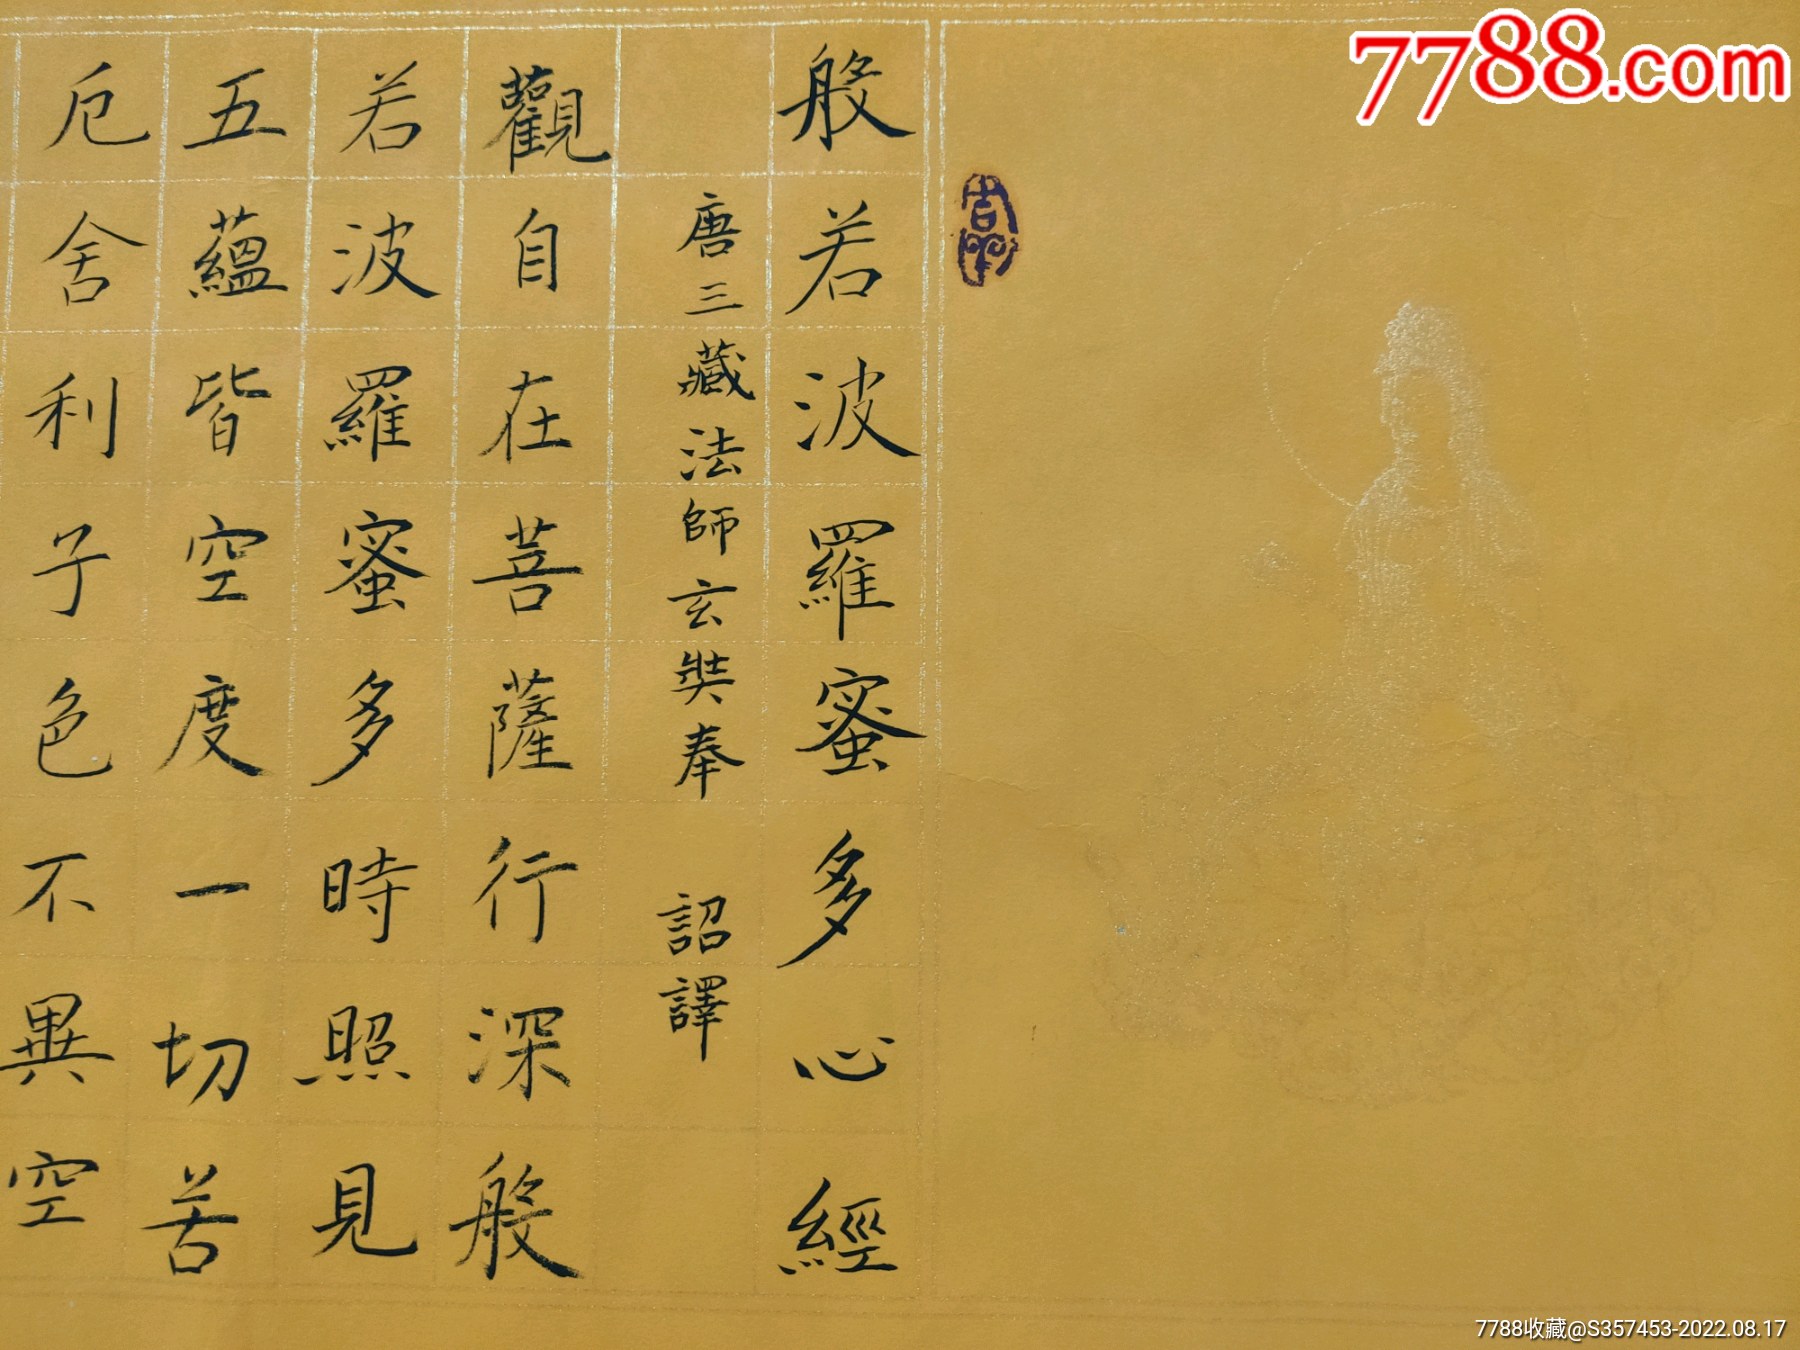 7788.com
般若波羅蜜多心經
唐三藏法師玄奘奉 詔譯
觀自在菩薩行深般
若波羅蜜多時照見
五蘊皆空度一切苦
厄舍利子色不異空
7788收藏@S357453-2022.08.17